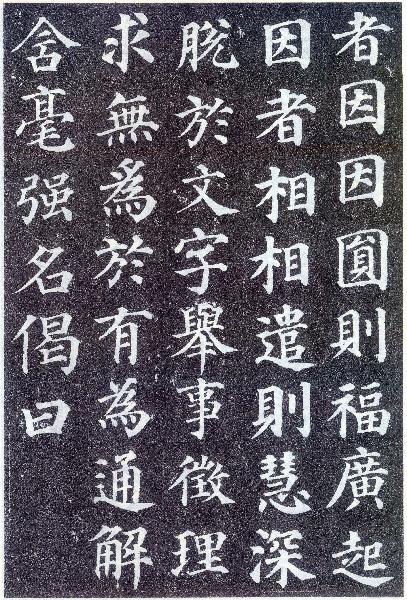 者因因圓則福廣起
因者相相遣則慧深
脱於文字舉事徵理
求無爲於有為通解
含毫强名偈曰